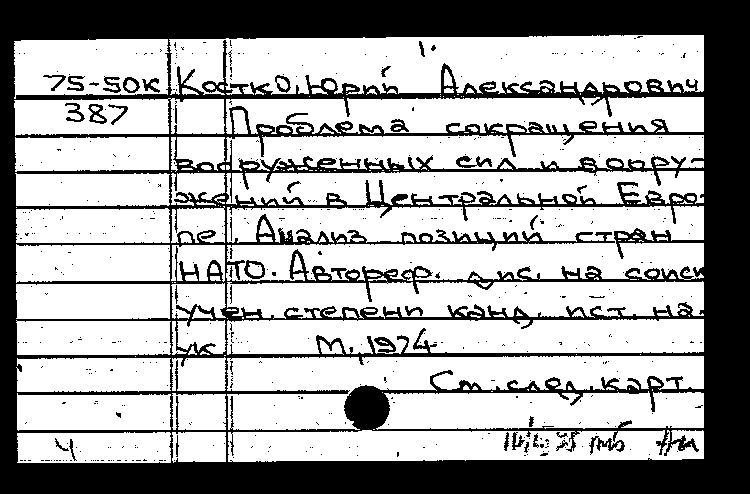 1.
75-50к Костко, Юрий Александрович
387 Проблема сокращения
вооруженных сил и воору-
жений в Центральной Евро-
пе. Анализ позиций стран
НАТО. Автореф. дис. на соиск
учен. степени канд. ист. на-
ук М., 1974
См. след. карт.
4